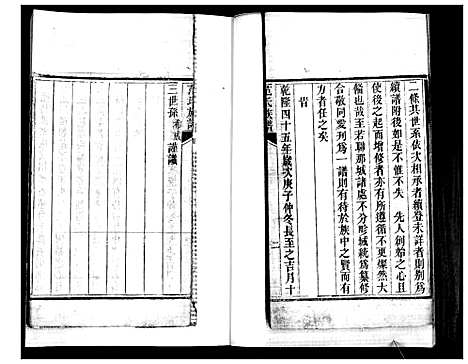 二條其世系依次相承者續登未詳者則別爲
續譜附後如是不惟不失　先人創始之心且
使後之起而增修者亦有所遵循不更燦然大
備也哉至若聯城諸處不分畛域統爲纂修
合敬同愛列爲一譜則有待於族中之賢而有
力者任之矣
旹
乾隆四十五年歲次庚子仲冬長至之吉月十
范氏族譜
三世孫
謹識